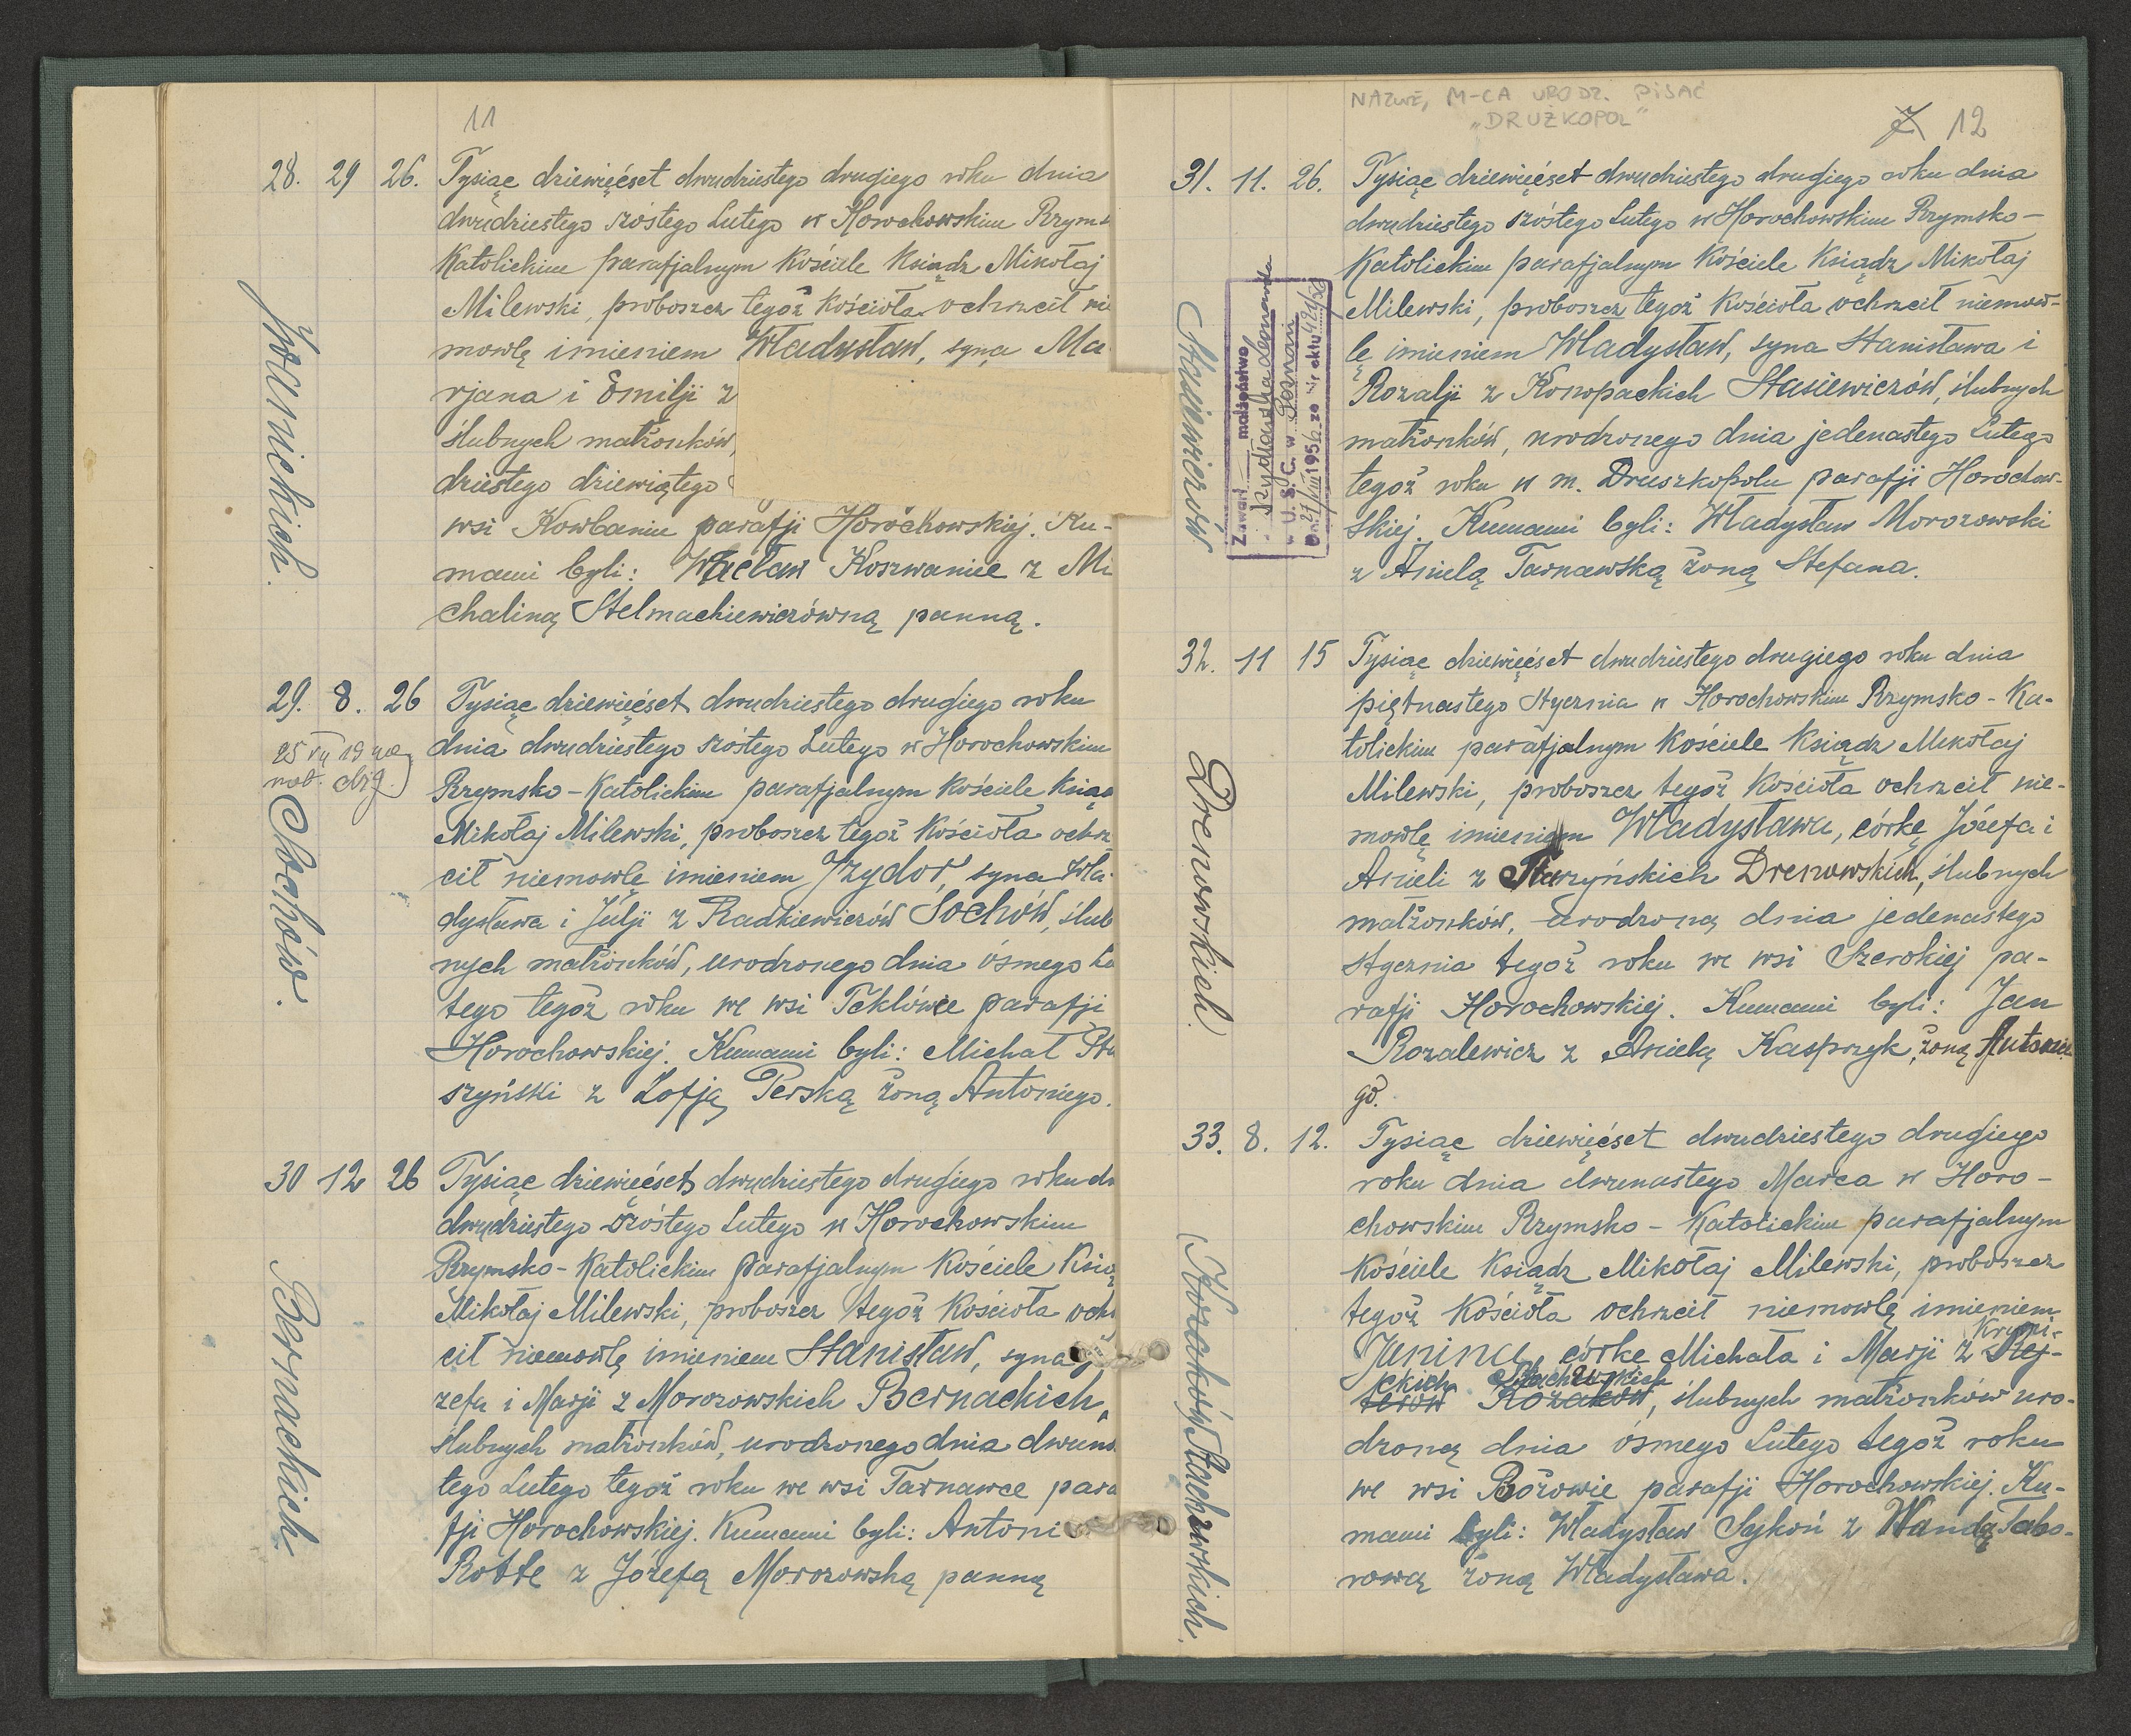 11
28. 29 26. Tysiąc dziewięćset dwudziestego drugiego roku dnia
dwudziestego szóstego Lutego w Horochowskim Rzyms
Katolickim parafjalnym Kościele Ksiądz Mikołaj
Milewski, proboszcz tegoż Kościoła ochrzcił nie
mowlę imieniem Władysław, syna Ma
rjana i Emilji z
ślubnych małżonków,
dziestego dziewiątego
wsi Kowbaniu parafji Horochowskiej. Ku-
mami byli: Wacław Koszwaniec z Mi
chaliną Stelmachiewiczówną panną.
29. 8. 26 Tysiąc dziewięćset dwudziestego drugiego roku
dnia dwudziestego szóstego Lutego w Horochowskim
Rzymsko-Katolickim parafjalnym Kościele Ksiądz
Mikołaj Milewski, proboszcz tegoż Kościoła ochrz
cił niemowlę imieniem Izydor, syna Wła
dysława i Julji z Radkiewiczów Sochów, ślub
nych małżonków, urodzonego dnia ósmego Lu
tego tegoż roku we wsi Teklówce parafji
Horochowskiej. Kumami byli: Michał
szyński z Zofją Perską żoną Antoniego.
Sochów.
30 12 26 Tysiąc dziewięćset dwudziestego drugiego roku dn
dwudziestego szóstego Lutego w Horochowskim
Rzymsko-Katolickim parafjalnym Kościele Ksią
Mikołaj Milewski, proboszcz tegoż Kościoła ochrz
cił niemowlę imieniem Stanisław, syna
zefa i Marji z Morozowskich Bernackich,
ślubnych małżonków, urodzonego dnia dwunas
tego Lutego tegoż roku we wsi Tarnawce para
fji Horochowskiej. Kumami byli: Antoni
Rotte z Józefą Morozowską panną
Bernackich
NAZWĘ, M-CA URODZ. PISAĆ
„DRUŻKOPOL"
7 12
31. 11. 26. Tysiąc dziewięćset dwudziestego drugiego roku dnia
dwudziestego szóstego Lutego w Horochowskim Rzymsko-
Katolickim parafjalnym Kościele Ksiądz Mikołaj
Milewski, proboszcz tegoż Kościoła ochrzcił niemow-
lę imieniem Władysław, syna Stanisława i
Rozalji z Konopackich Stasiewiczów, ślubnych
małżonków, urodzonego dnia jedenastego Lutego
tegoż roku w m. Druszkopolu parafji Horochow-
skiej. Kumami byli: Władysław Morozowski
z Anielą Tarnawską żoną Stefana.
Stasiewiczów
Zawarł małżeństwo
U. S. C. w Poznani
195 za Nr aktu
32. 11 15 Tysiąc dziewięćset dwudziestego drugiego roku dnia
piętnastego Stycznia w Horochowskim Rzymsko-Ka-
tolickim parafjalnym Kościele Ksiądz Mikołaj
Milewski, proboszcz tegoż Kościoła ochrzcił nie-
mowlę imieniem Władysława, córkę Józefa i
Anieli z Starzyńskich Drenowskich, ślubnych
małżonków, urodzoną dnia jedenastego
Stycznia tegoż roku we wsi Szerokiej pa-
rafji Horochowskiej. Kumami byli: Jan
Rozalewicz z Anielą Kasprzyk, żoną Antonie
go.
Drenowskich.
33. 8. 12. Tysiąc dziewięćset dwudziestego drugiego
roku dnia dwunastego Marca w Horo-
chowskim Rzymsko-Katolickim parafjalnym
Kościele Ksiądz Mikołaj Milewski, proboszcz
tegoż Kościoła ochrzcił niemowlę imieniem
Janina, córkę Michała i Marji z
ckich Stachowskich
Kozaków, ślubnych małżonków uro-
dzoną dnia ósmego Lutego tegoż roku
we wsi Bożowie parafji Horochowskiej. Ku-
mami byli: Władysław Sykoń z Wandą Tabo-
rową żoną Władysława.
(Kozaków) Stachowskich.